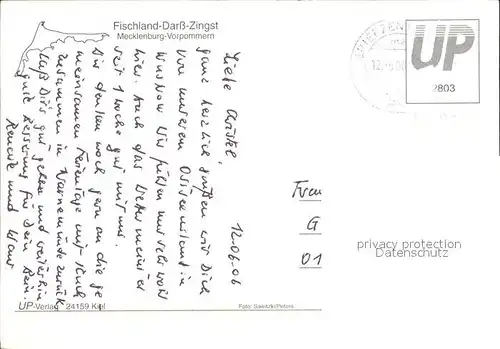 Fischland-Darß-Zingst
Mecklenburg-Vorpommern
UP
2803
12.06.06
Liebe Christel,
ganz herzlich grüßen wir Dich
von unserem Ostseeurlaub in
Wustrow. Wir fühlen uns sehr wohl
hier. Auch das Wetter meint es
seit 1 Woche gut mit uns.
Wir denken noch gern an die ge
meinsamen Ferientage mit Euch
zusammen in Warnemünde zurück.
Laß Dir's gut gehen und weiterhin
gute Besserung für Dein Bein.
Renate und Klaus
Frau
G
01
privacy protection
Datenschutz
UP-Verlag 24159 Kiel
Foto: Sawitzki/Peters